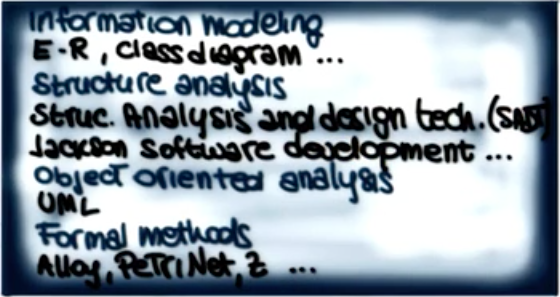 Information modeling
E-R, class diagram ...
Structure analysis
Struc. Analysis and design tech. (SADT)
Jackson Software development ...
Object oriented analysis
UML
Formal methods
Alloy, PeTri Net, Z ...